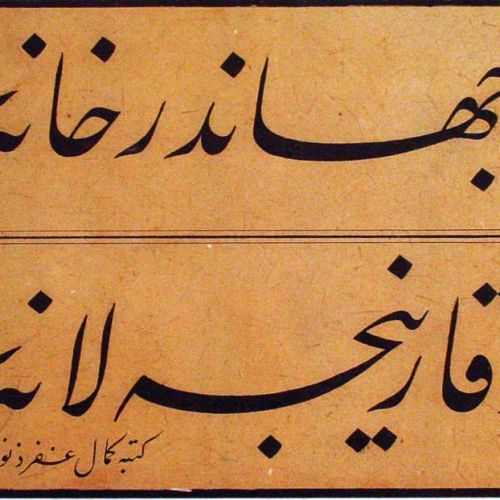 جهاندر خانه
قارینجه لانه
كتبه كمال غفر ذنو